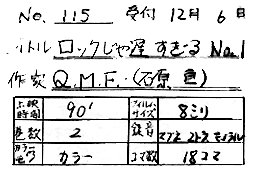 No. 115 受付 12月 6日
タイトル ロックじゃ遅すぎる No.1
作家 Q.M.F. (石原 )
上映時間 90' フィルムサイズ 8ミリ
巻数 2 録音
カラーモノクロ カラー コマ数 18コマ